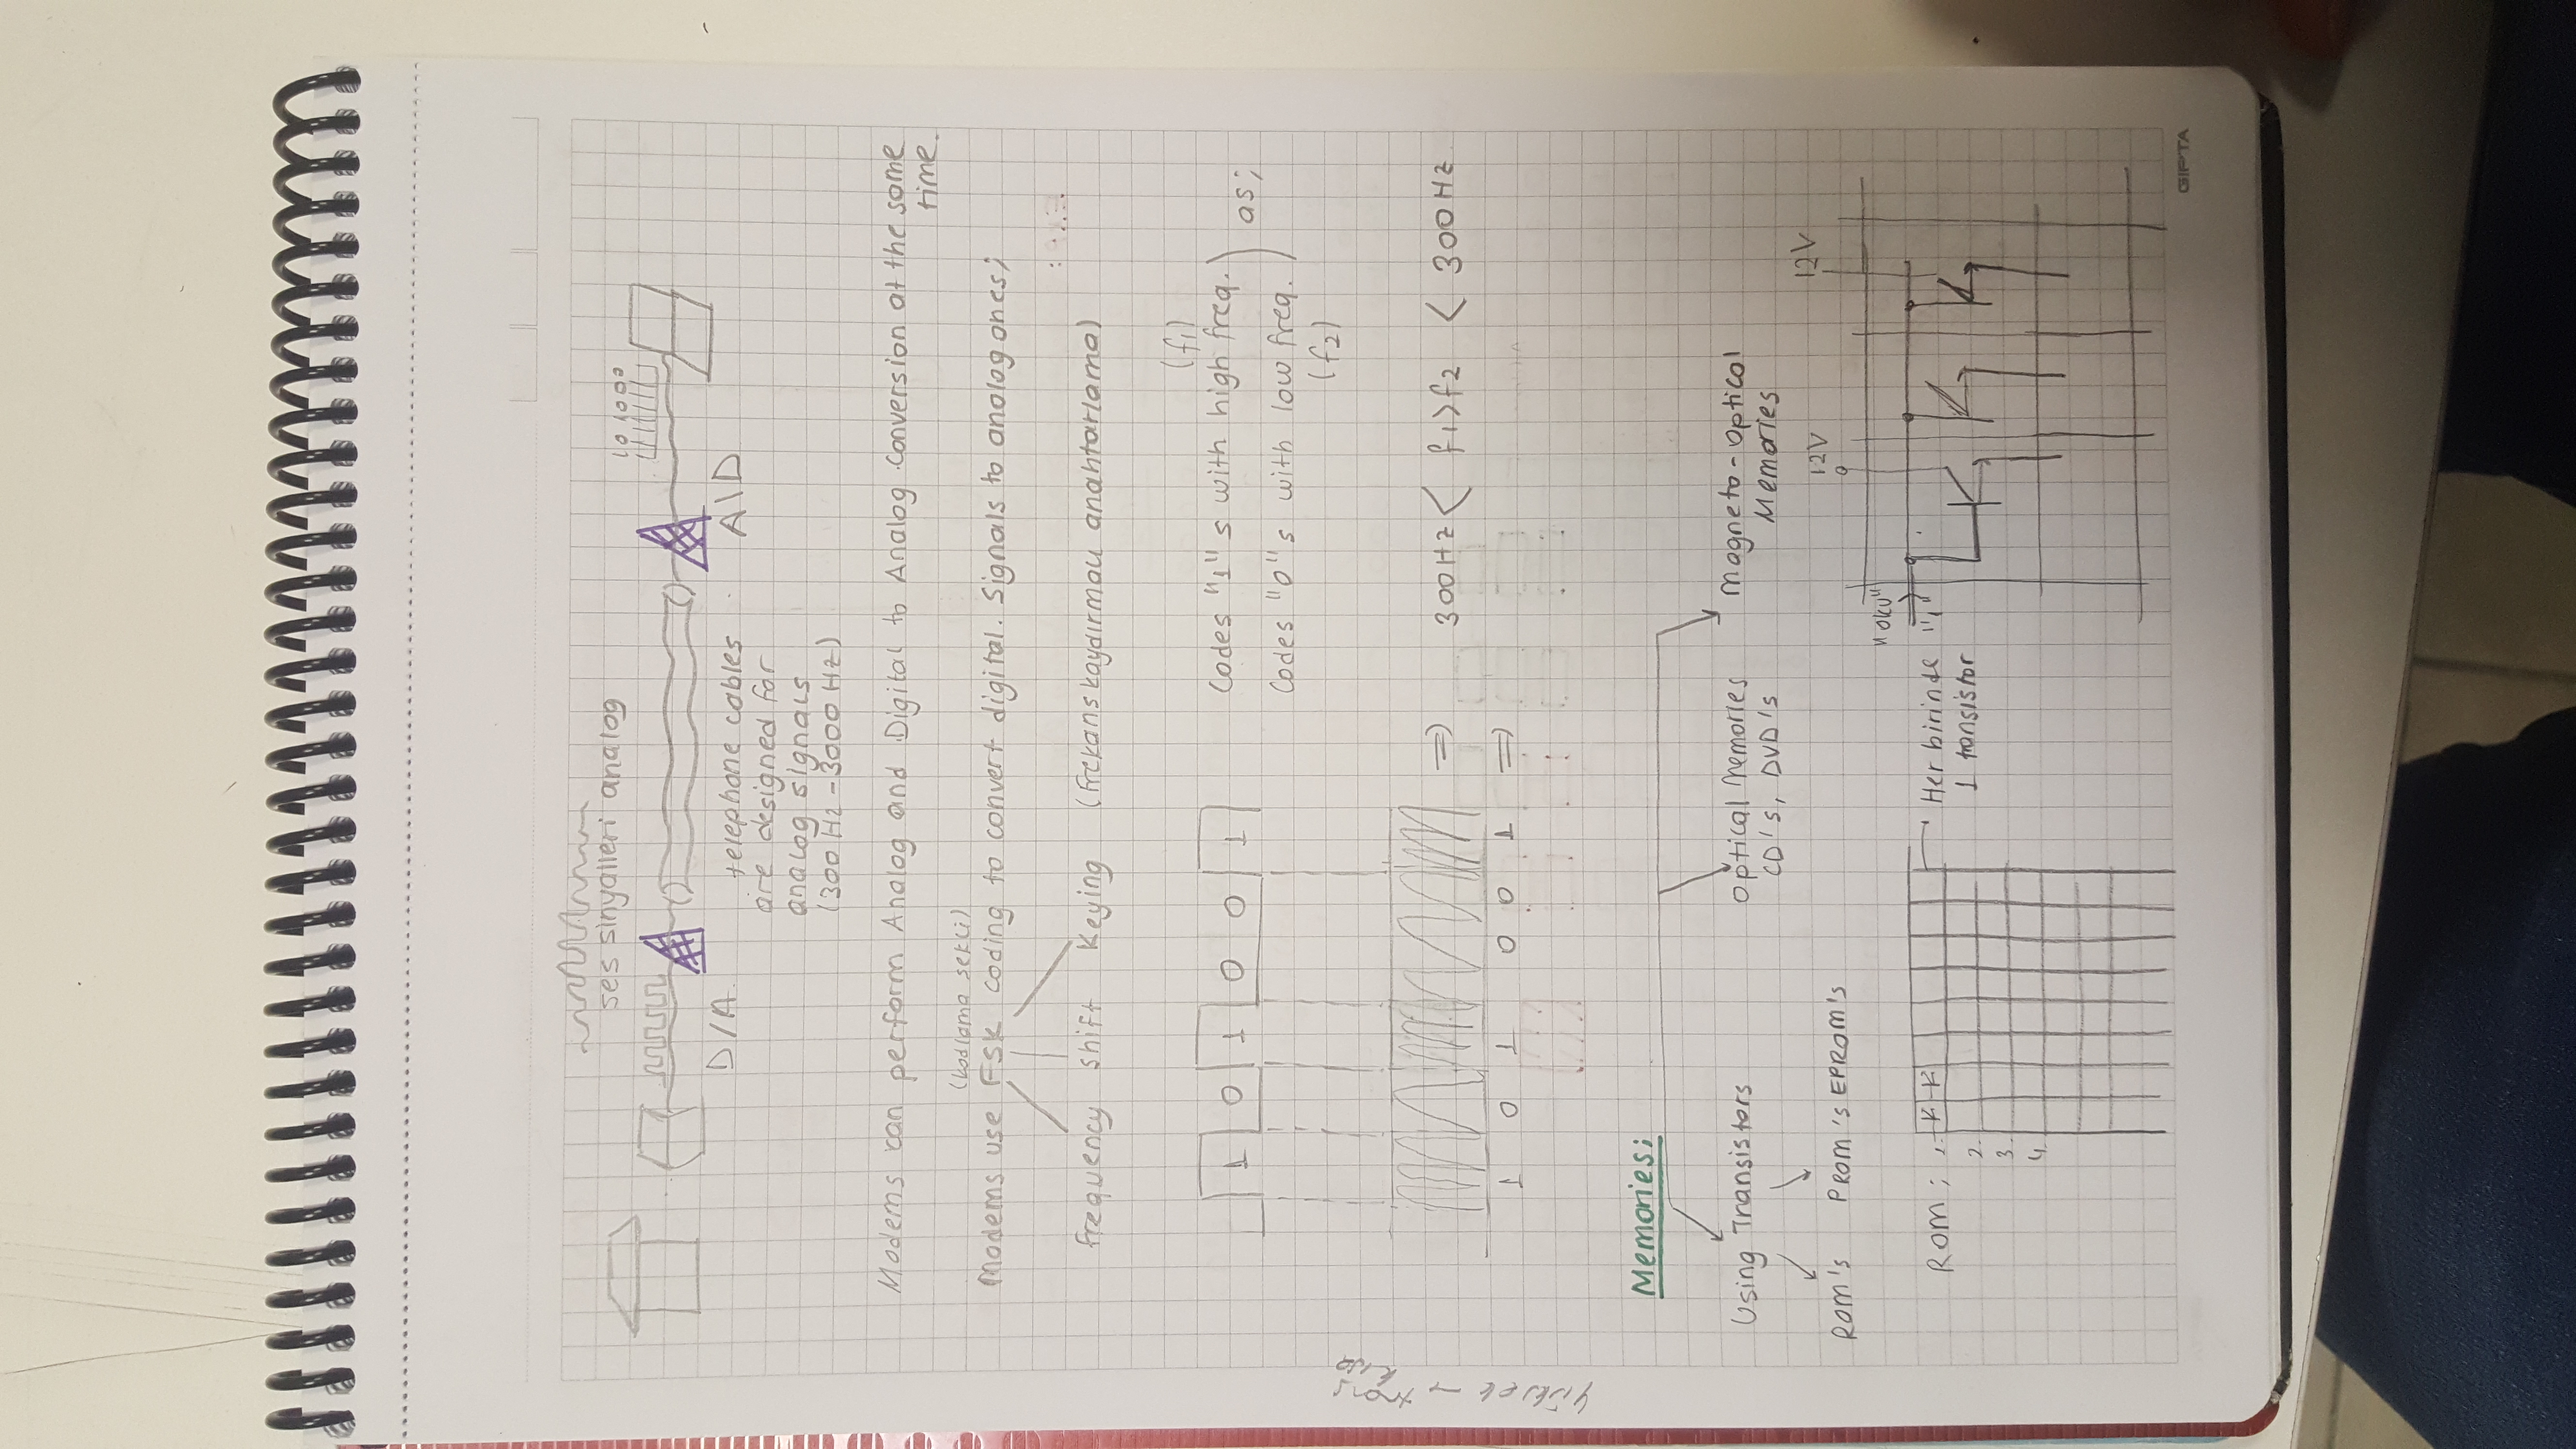 ses sinyalleri analog
1 0 1 0 0 0
D/A.
A\D
telephone cables
are designed for
analog signals
(300 Hz - 3000 Hz)
Modems can perform Analog and Digital to Analog conversion at the same
time.
(kodlama sekli)
Modems use FSK coding to convert digital. Signals to analog ones;
frequency shift Keying (frekans kaydırmalı anahtarlama)
(f1)
1 0 1 0 0 1
Codes "1"s with high freq.
as;
Codes "0"s with low freq.
(f2)
yüksek → trans
kısa
=> 300Hz < f1>f2 < 300Hz
1 0 1 0 0 1 =>
Memories;
Using Transistors
Optical Memories
CD's, DVD's
Magneto-Optical
Memories
Rom's PRom's EPROM's
12V
12V
"oku"
"1"
Rom; 1.
2.
3.
4.
Her birinde
1 transistor
GIPTA